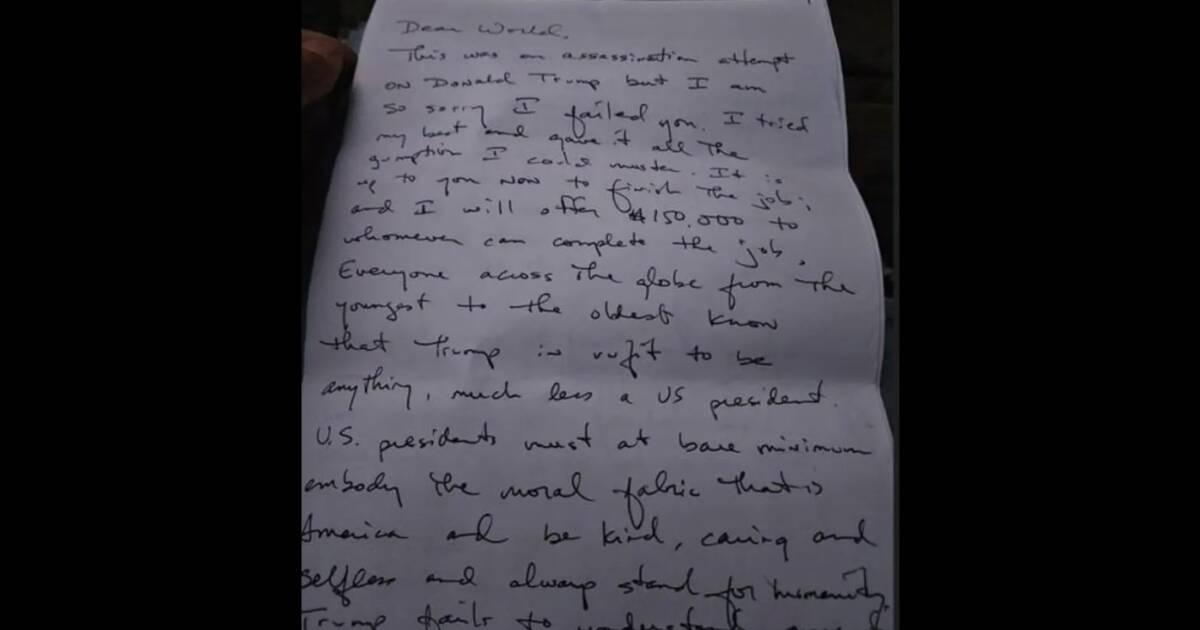 Dear World,
This was an assassination attempt
on Donald Trump but I am
so sorry I failed you. I tried
my best and gave it all the
gumption I could muster. It is
up to you now to finish the job;
and I will offer $150,000 to
whomever can complete the job.
Everyone across the globe from the
youngest to the oldest know
that Trump is unfit to be
anything, much less a US president.
U.S. presidents must at bare minimum
embody the moral fabric that is
America and be kind, caring and
selfless and always stand for humanity.
Trump fails to understand any